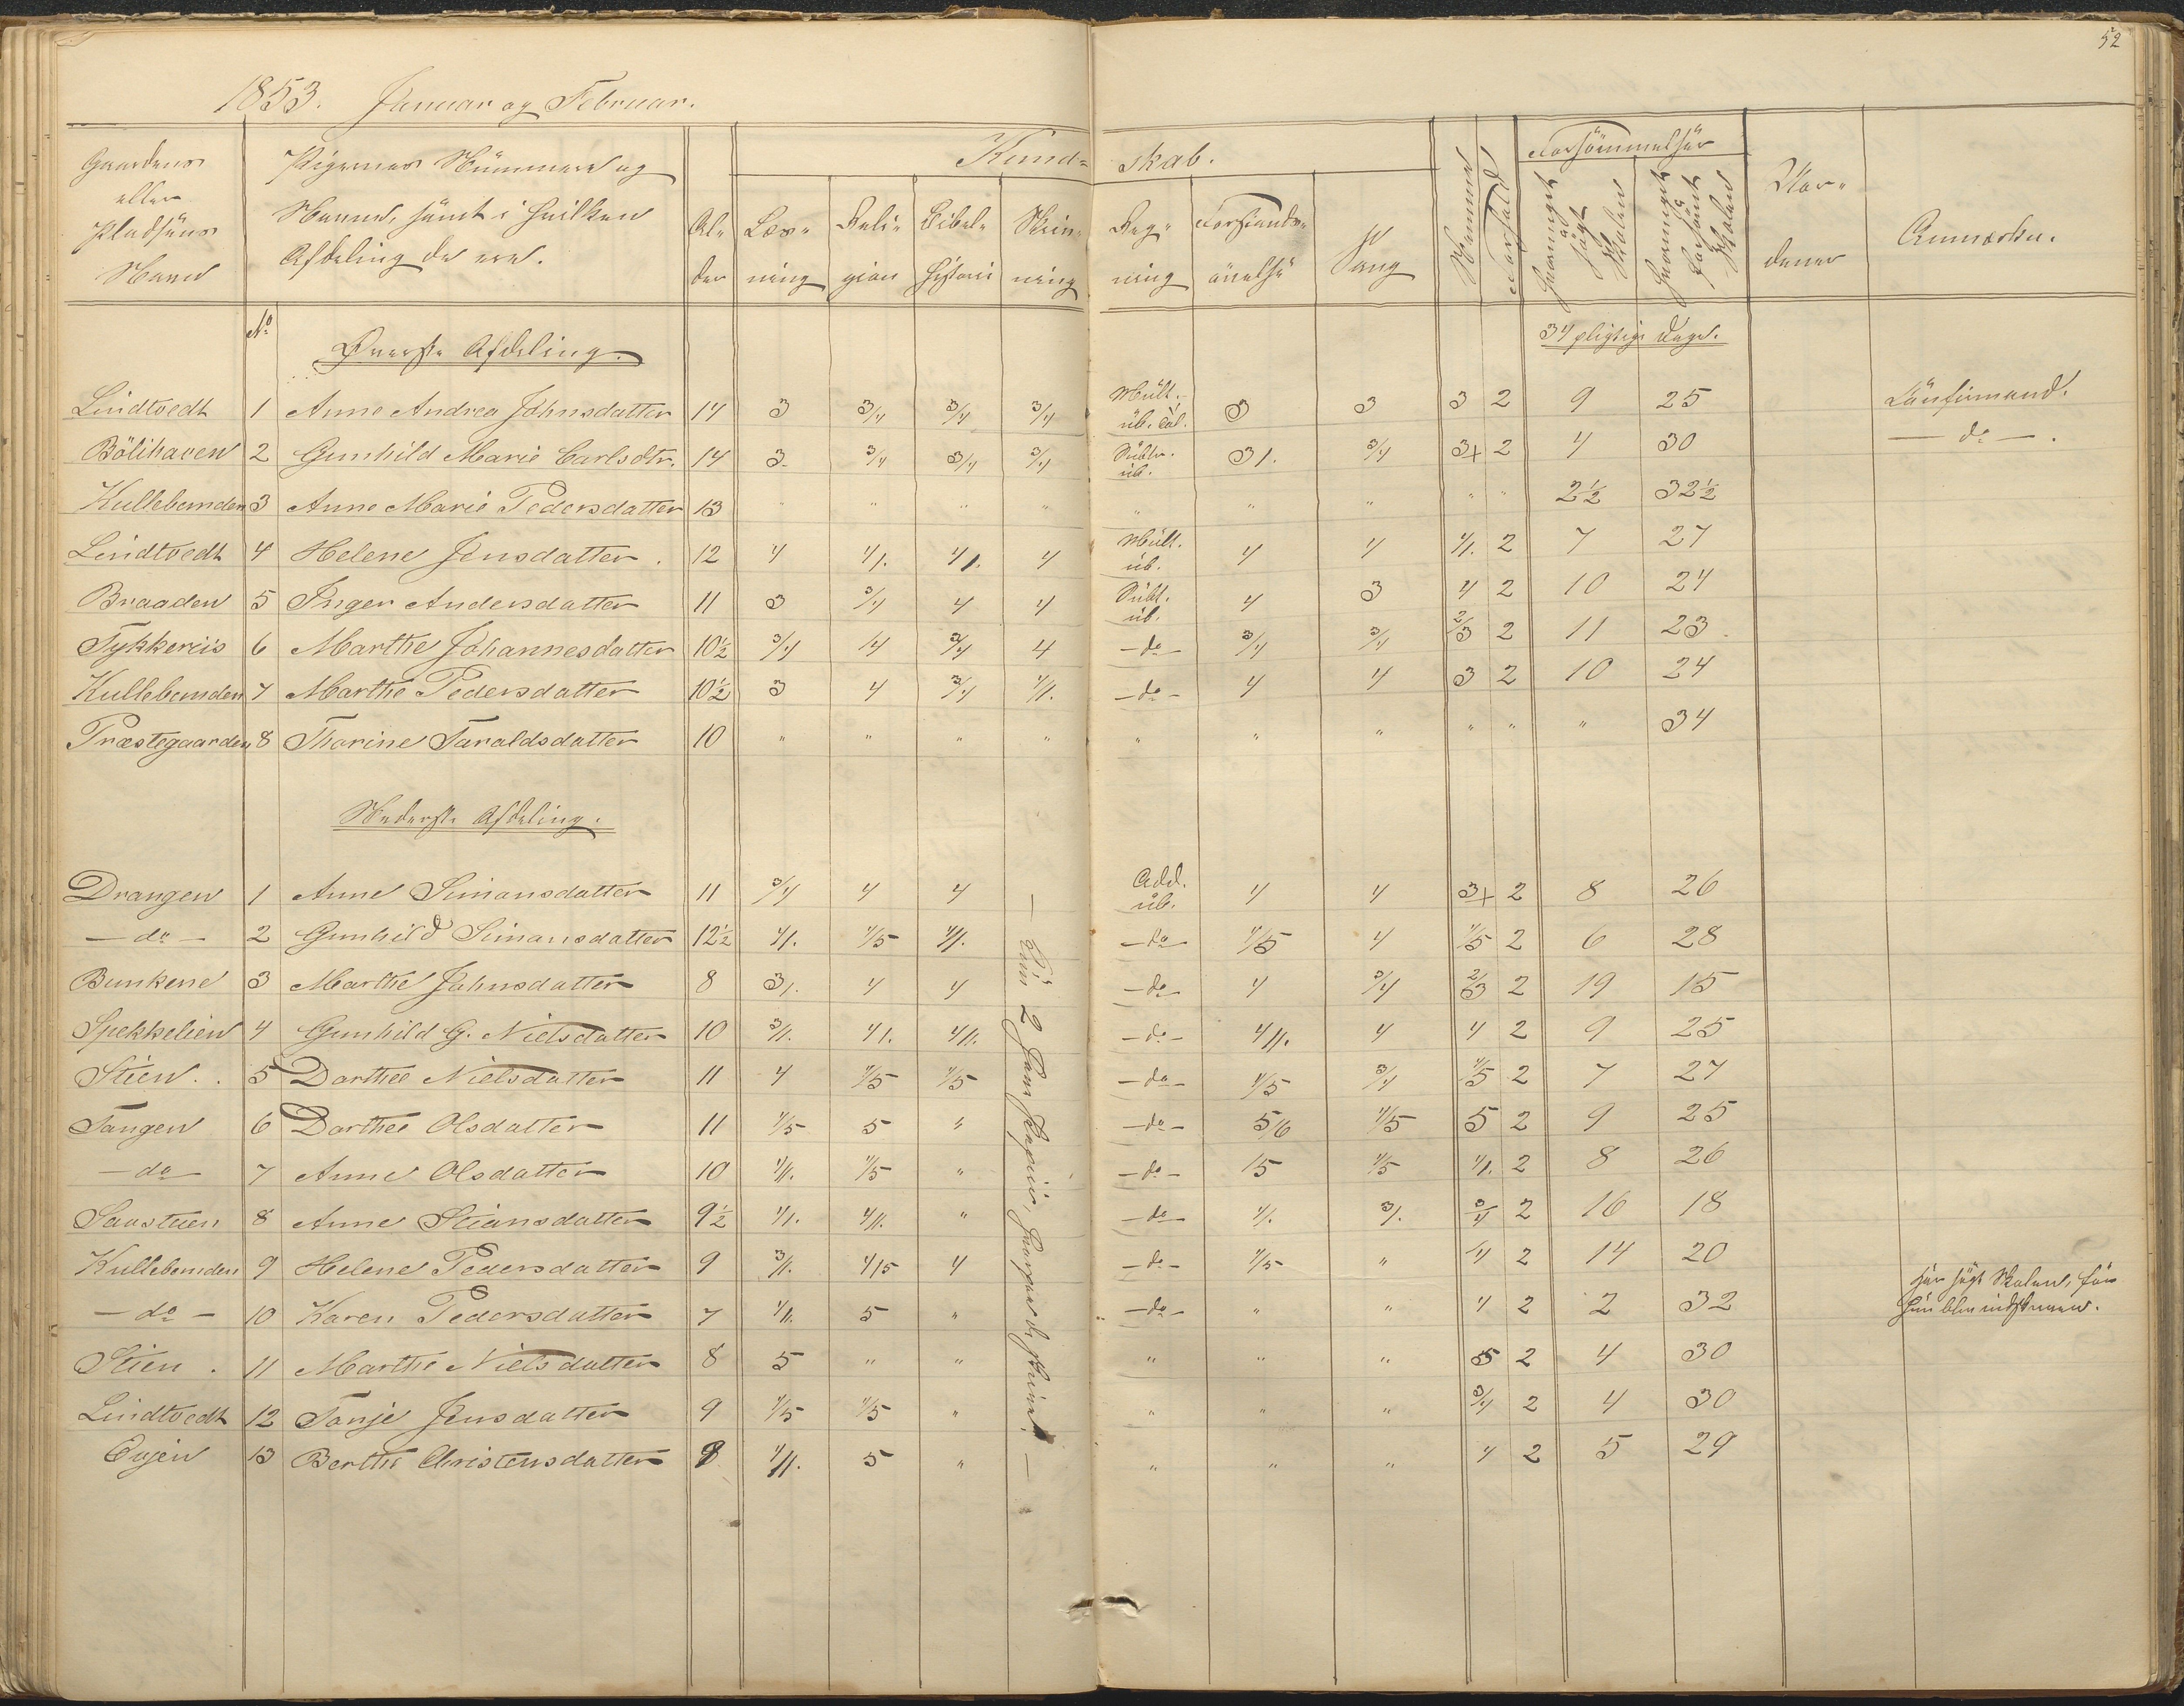 52
1853. Januar og Februar.
Gaardens eller Pladsens Navn
Pigernes Nummere og Navne, samt i hvilken Afdeling de ere.
Alder
Kundskab.
Læsning
Religion
Bibelhistorie
Skrivning
Regning
Forstandsøvelse
Sang
Nemme
Forhold
Forsømmelser
Hvormeget søgt Skolen
Hvormeget forsømt Skolen
Anmærkn.
No
Øverste Afdeling.
34 pligtige Dage.
Lindtvedt 1 Anne Andrea Johnsdatter 14 3 3/4 3/4 3/4 Mult. üb. 3 3 3 2 9 25
Bölihaven 2 Gunhild Marie Carlsdtr. 14 3 3/4 3/4 3/4 Subtr. üb. 3/. 3/4 3+ 2 4 30 — do — .
Kullebunden 3 Anne Marie Pedersdatter 13 " " " " " " " " " 2½ 32½
Lindtvedt 4 Helene Jensdatter . 12 4 4/. 4/. 4 Mult. üb. 4 4 4/. 2 7 27
Braaden 5 Inger Andersdatter 11 3 3/4 4 4 Subt. üb. 4 3 4 2 10 24
Tykkereis 6 Marthe Johannesdatter 10½ 3/4 4 3/4 4 — do — 3/4 3/4 2/3 2 11 23
Kullebunden 7 Marthe Pedersdatter 10½ 3 4 3/4 4/. — do — 4 4 3 2 10 24
Præstegaarden 8 Thorine Taraldsdatter 10 " " " " " " " " " " 34
Nederste Afdeling.
Drangen 1 Anne Simonsdatter 11 3/4 4 4 Add. üb. 4 4 3+ 2 8 26
— do — 2 Gunhild Simonsdatter 12½ 4/. 4/5 4/. — do — 4/5 4 4/5 2 6 28
Bunkene 3 Marthe Johnsdatter 8 3/. 4 4 — do — 4 3/4 2/3 2 19 15
Spekkelien 4 Gunhild G. Nielsdatter 10 3/. 4/. 4//. — do — 4//. 4 4 2 9 25
Stien . . 5 Dorthee Nielsdatter 11 4 4/5 4/5 — do — 4/5 3/4 4/5 2 7 27
Tangen 6 Dorthee Olsdatter 11 4/5 5 " — do — 5/6 4/5 5 2 9 25
— do — 7 Anne Olsdatter 10 4//. 4/5 " — do — 15 4/5 4/. 2 8 26
8 Anne Stiansdatter 9½ 4/. 4//. " — do — 4/. 3/. 3/4 2 16 18
Kullebunden 9 Helene Pedersdatter 9 3//. 4/5 4 — do — 4/5 " 4 2 14 20
— do — 10 Karen Pedersdatter 7 4//. 5 " — do — " " 4 2 2 32 har søgt Skolen, før
hun blev indskreven.
Stien . 11 Marthe Nielsdatter 8 5 " " " " " 5 2 4 30
Lindtvedt 12 Tonje Jensdatter 9 4/5 4/5 " " " " 3/4 2 4 30
13 Berthe Christensdatter 8 4//. 5 " " " " 4 2 5 29